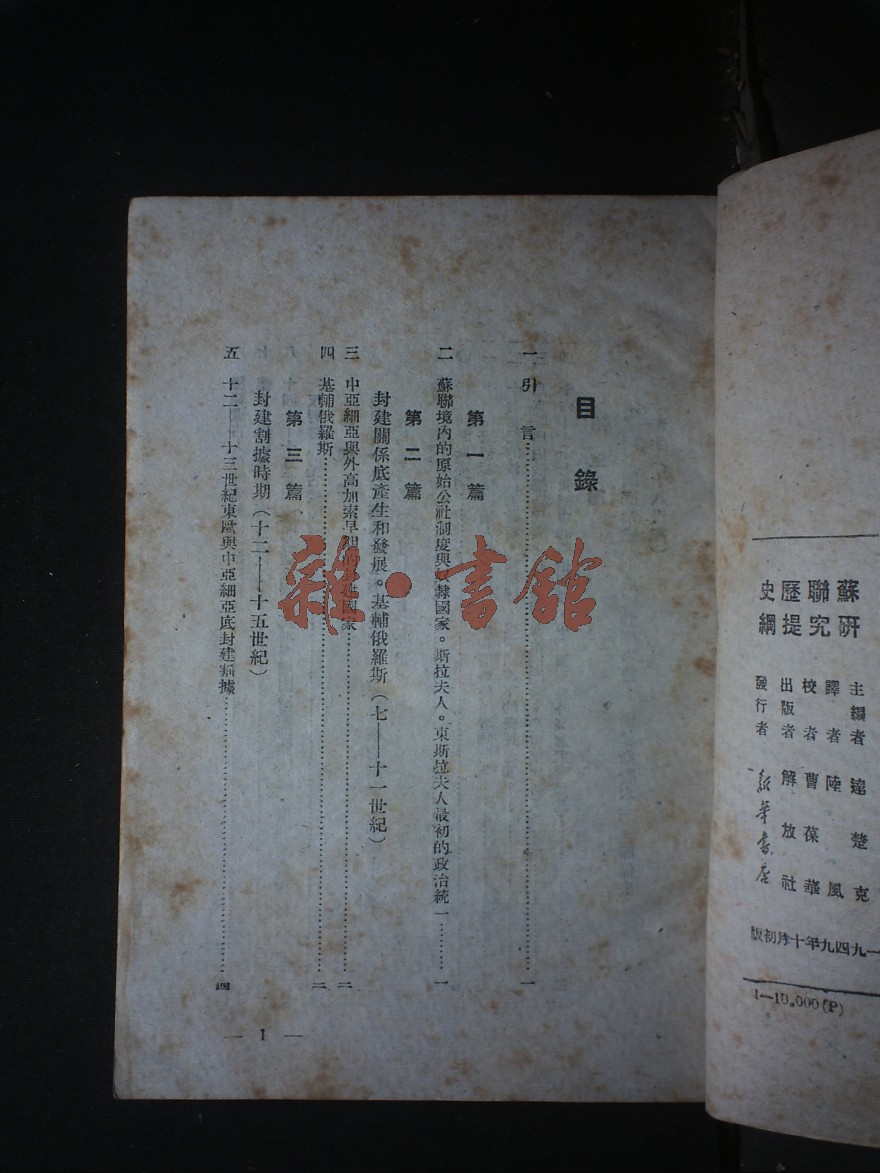 蘇聯歷史
研究提綱
主編者 達楚克
譯者 陸風
校者 曹葆華
出版者 解放社
發行者 新華書店
一九四九年十月初版
1—10,000(P)
目錄
一 引言 一
第一篇
二 蘇聯境內的原始公社制度與奴隸國家。斯拉夫人。東斯拉夫人最初的政治統一 一
第二篇
封建關係底產生和發展。基輔俄羅斯(七——十一世紀)
三 中亞細亞與外高加索早期的封建國家 二
四 基輔俄羅斯 二
第三篇
封建割據時期(十二——十五世紀)
五 十二——十三世紀東歐與中亞細亞底封建割據 四
— 1 —
雜·書館